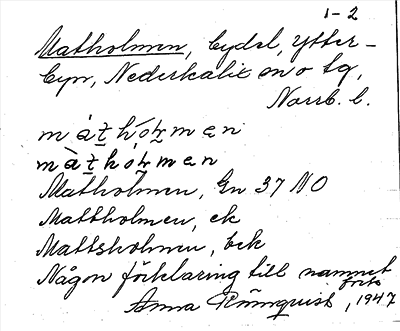 1-2
Matholmen, Cydel, Ytter-
byn, Nederkalix sn o tg,
Norrb. l.
m à t h ó l m e n
m à t h ó l m e n
Matholmen, Gn 37 NO
Mattholmen, ek
Mattsholmen, bek
Någon förklaring till namnet
forts
Anna Rönnquist, 1947